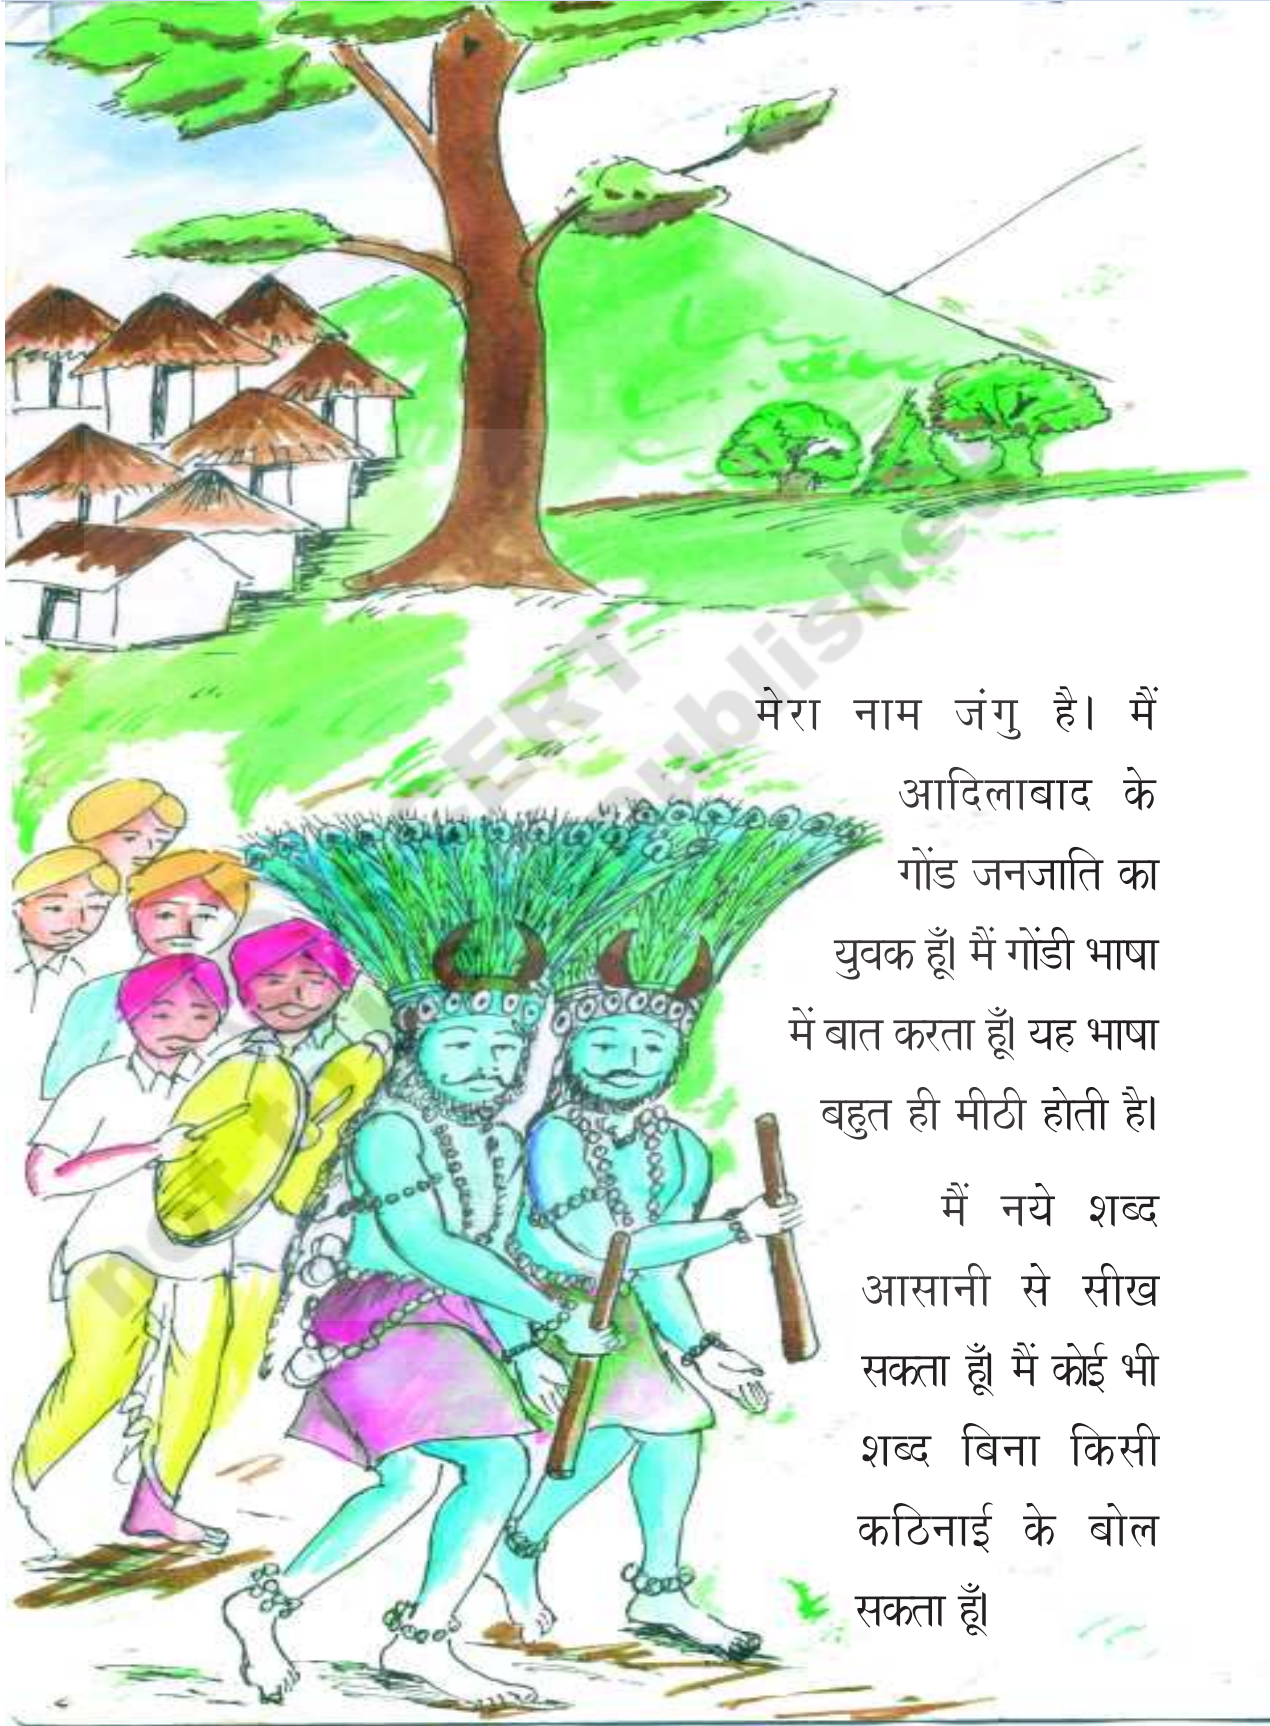 मेरा नाम जंगु है। मैं
आदिलाबाद के
गोंड जनजाति का
युवक हूँ। मैं गोंडी भाषा
में बात करता हूँ। यह भाषा
बहुत ही मीठी होती है।
मैं नये शब्द
आसानी से सीख
सकता हूँ। मैं कोई भी
शब्द बिना किसी
कठिनाई के बोल
सकता हूँ।